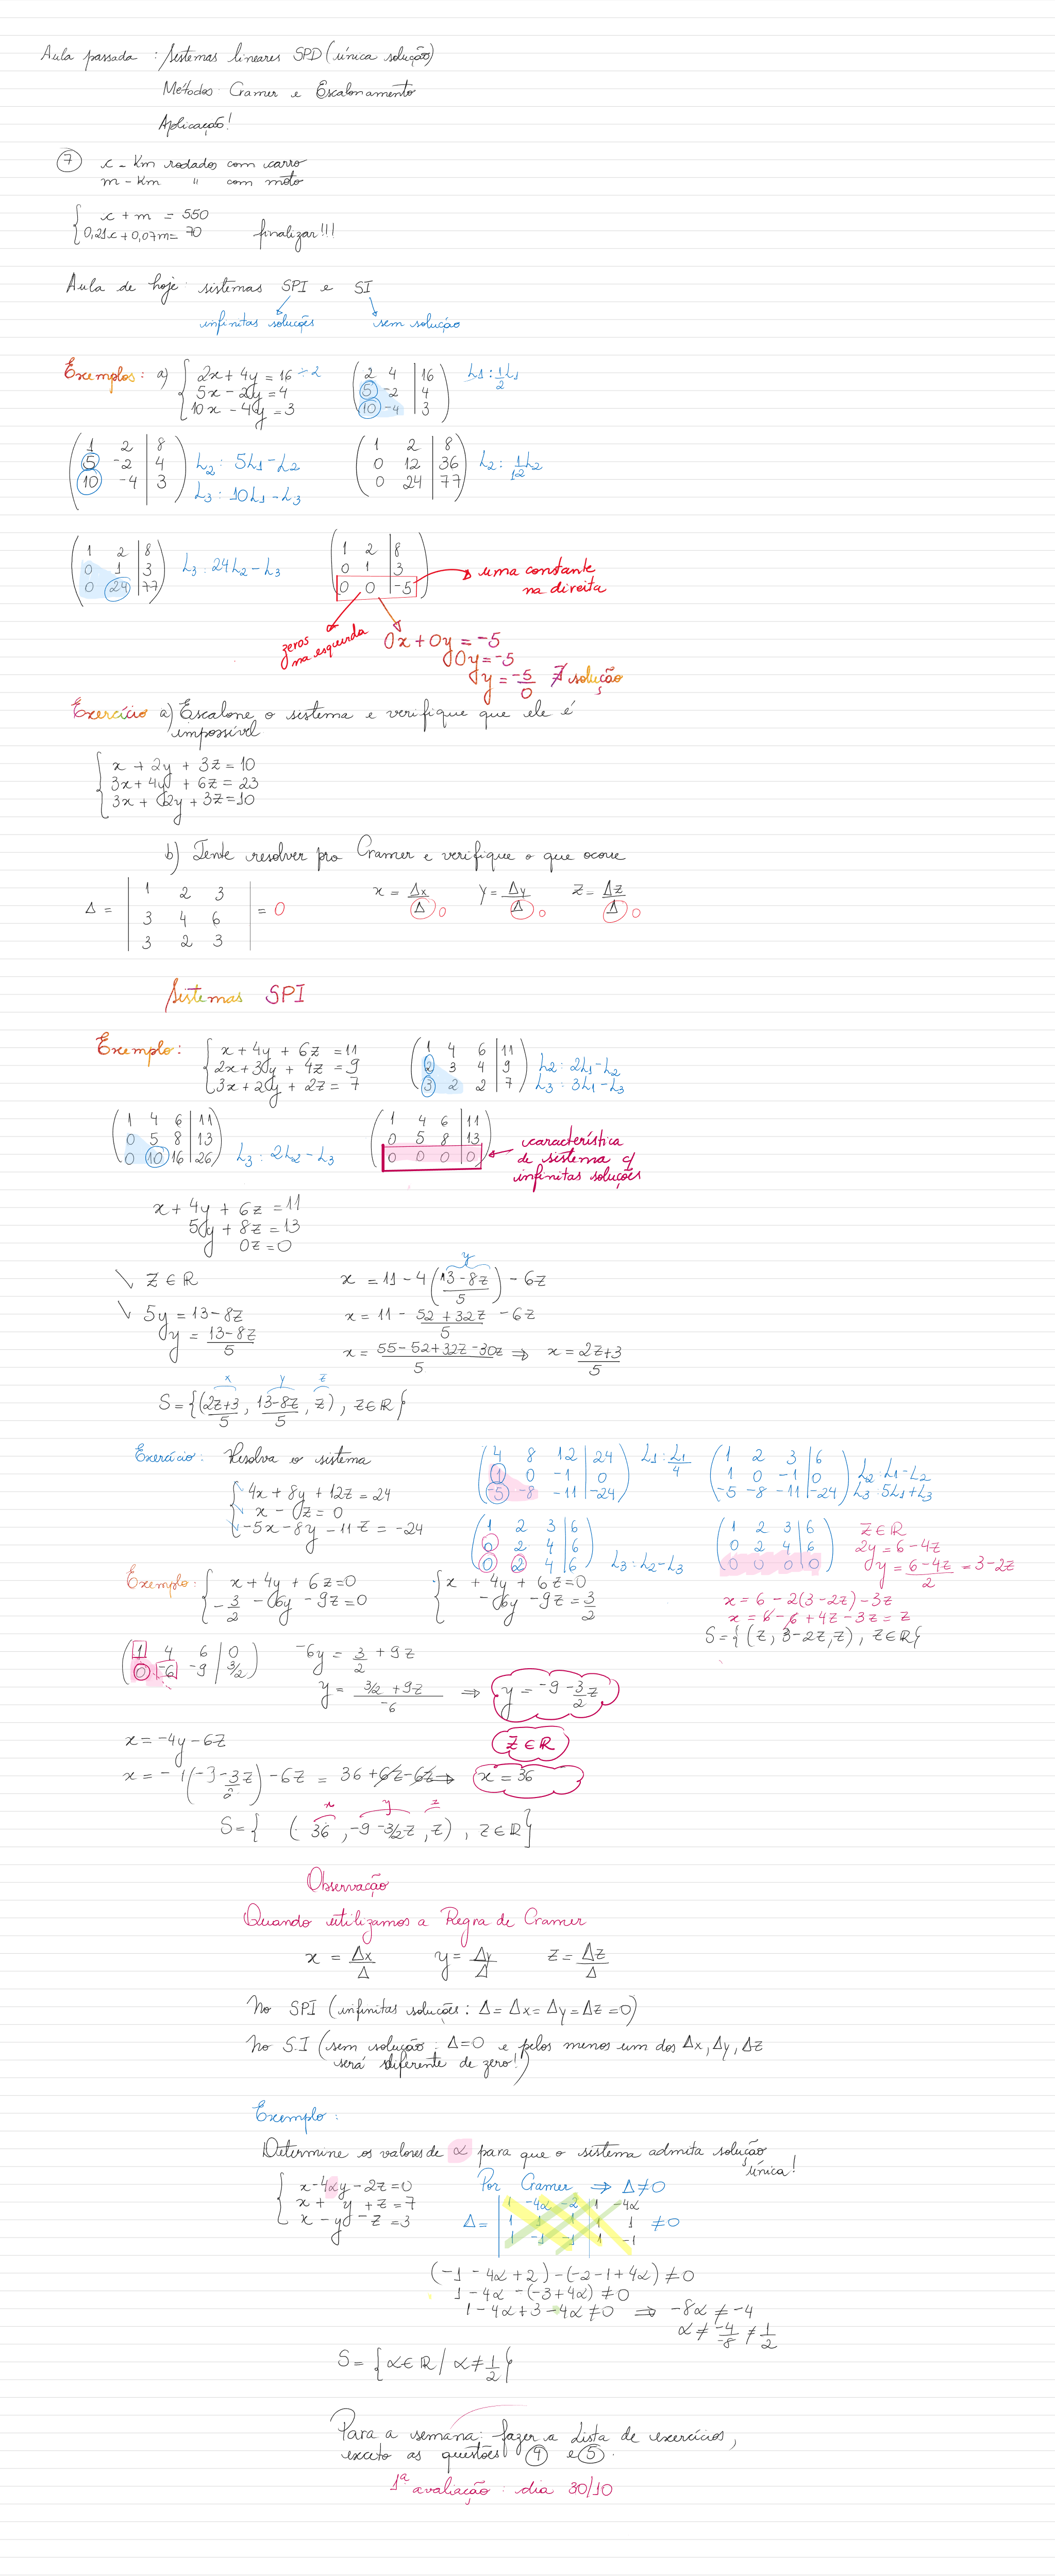 Aula passada : Sistemas lineares SPD (única solução)
Métodos Cramer e Escalonamento
Aplicação!
7 c - Km rodados com carro
m - Km " com moto
c + m = 550
0,21c + 0,07m = 70 finalizar!!!
Aula de hoje: sistemas SPI e SI
infinitas soluções sem solução
Exemplos: a) 2x + 4y = 16 ÷2
5x - 2y = 4
10x - 4y = 3
2 4 | 16
5 -2 | 4
10 -4 | 3
L1 : 1/2 L1
1 2 | 8
5 -2 | 4
10 -4 | 3
L2 : 5L1 - L2
L3 : 10L1 - L3
1 2 | 8
0 12 | 36
0 24 | 77
L2 : 1/12 L2
1 2 | 8
0 1 | 3
0 24 | 77
L3 : 24L2 - L3
1 2 | 8
0 1 | 3
0 0 | -5
uma constante
na direita
zeros
na esquerda
0x + 0y = -5
0y = -5
y = -5/0 ∄ solução
Exercício a) Escalone o sistema e verifique que ele é
impossível
x + 2y + 3z = 10
3x + 4y + 6z = 23
3x + 2y + 3z = 10
b) Tente resolver pro Cramer e verifique o que ocorre
Δ = | 1 2 3
3 4 6
3 2 3 | = 0
x = Δx/Δ 0 y = Δy/Δ 0 z = Δz/Δ 0
Sistemas SPI
Exemplo: x + 4y + 6z = 11
2x + 3y + 4z = 9
3x + 2y + 2z = 7
1 4 6 | 11
2 3 4 | 9
3 2 2 | 7
L2 : 2L1 - L2
L3 : 3L1 - L3
1 4 6 | 11
0 5 8 | 13
0 10 16 | 26
L3 : 2L2 - L3
1 4 6 | 11
0 5 8 | 13
0 0 0 | 0
característica
de sistema c/
infinitas soluções
x + 4y + 6z = 11
5y + 8z = 13
0z = 0
\ z ∈ R
\ 5y = 13 - 8z
y = 13 - 8z/5
y
x = 11 - 4(13 - 8z/5) - 6z
x = 11 - 52 + 32z/5 - 6z
x = 55 - 52 + 32z - 30z/5 ⇒ x = 2z + 3/5
x y z
S = {(2z+3/5, 13-8z/5, z), z ∈ R}
Exercício: Resolva o sistema
4x + 8y + 12z = 24
x - z = 0
-5x - 8y - 11z = -24
4 8 12 | 24
1 0 -1 | 0
-5 -8 -11 | -24
L1 : L1/4
1 2 3 | 6
1 0 -1 | 0
-5 -8 -11 | -24
L2 : L1 - L2
L3 : 5L1 + L3
1 2 3 | 6
0 2 4 | 6
0 2 4 | 6
L3 : L2 - L3
1 2 3 | 6
0 2 4 | 6
0 0 0 | 0
z ∈ R
2y = 6 - 4z
y = 6 - 4z/2 = 3 - 2z
x = 6 - 2(3 - 2z) - 3z
x = 6 - 6 + 4z - 3z = z
S = {(z, 3 - 2z, z), z ∈ R}
Exemplo: x + 4y + 6z = 0
-3/2 - 6y - 9z = 0
x + 4y + 6z = 0
-6y - 9z = 3/2
1 4 6 | 0
0 -6 -9 | 3/2
-6y = 3/2 + 9z
y = 3/2 + 9z/-6 ⇒ y = -9 - 3/2 z
x = -4y - 6z
z ∈ R
x = - (-3 - 3/2 z) - 6z = 36 + 6z - 6z ⇒ x = 36
x y z
S = { (36, -9 - 3/2z, z), z ∈ R}
Observação
Quando utilizamos a Regra de Cramer
x = Δx/Δ y = Δy/Δ z = Δz/Δ
No SPI (infinitas soluções: Δ = Δx = Δy = Δz = 0)
No S.I (sem solução : Δ = 0 e pelos menos um dos Δx, Δy, Δz
será diferente de zero!)
Exemplo:
Determine os valores de α para que o sistema admita solução
única!
x - 4αy - 2z = 0
x + y + z = 7
x - y - z = 3
Por Cramer ⇒ Δ ≠ 0
Δ = | 1 -4α -2 | 1 -4α
1 1 1 | 1 1 ≠ 0
1 -1 -1 | 1 -1
(-1 - 4α + 2) - (-2 - 1 + 4α) ≠ 0
1 - 4α - (-3 + 4α) ≠ 0
1 - 4α + 3 - 4α ≠ 0 ⇒ -8α ≠ -4
α ≠ -4/-8 ≠ 1/2
S = {α ∈ R / α ≠ 1/2}
Para a semana: fazer a Lista de exercícios,
exceto as questões 4 e 5.
1ª avaliação : dia 30/10